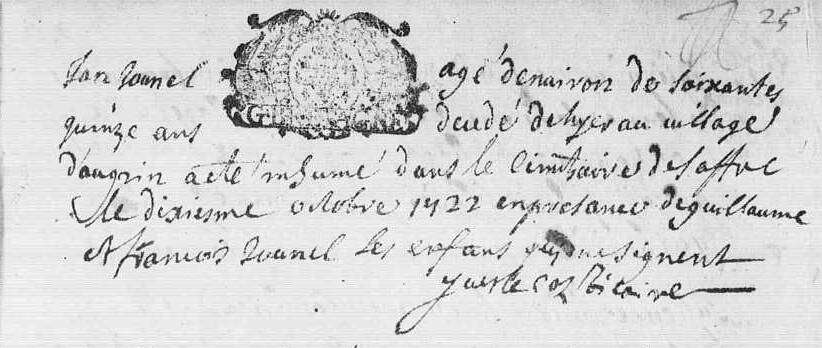 25
Jan Jounel agé denuiron de soixantes
quinze ans decedé de hyer au uillage
daugrin a eté inhumé dans le cimtaire de saffré
le dixiesme octobre 1722 en presance de guillaume
et francois Jounel ses enfans qui ne signent
yues le coz vicaire